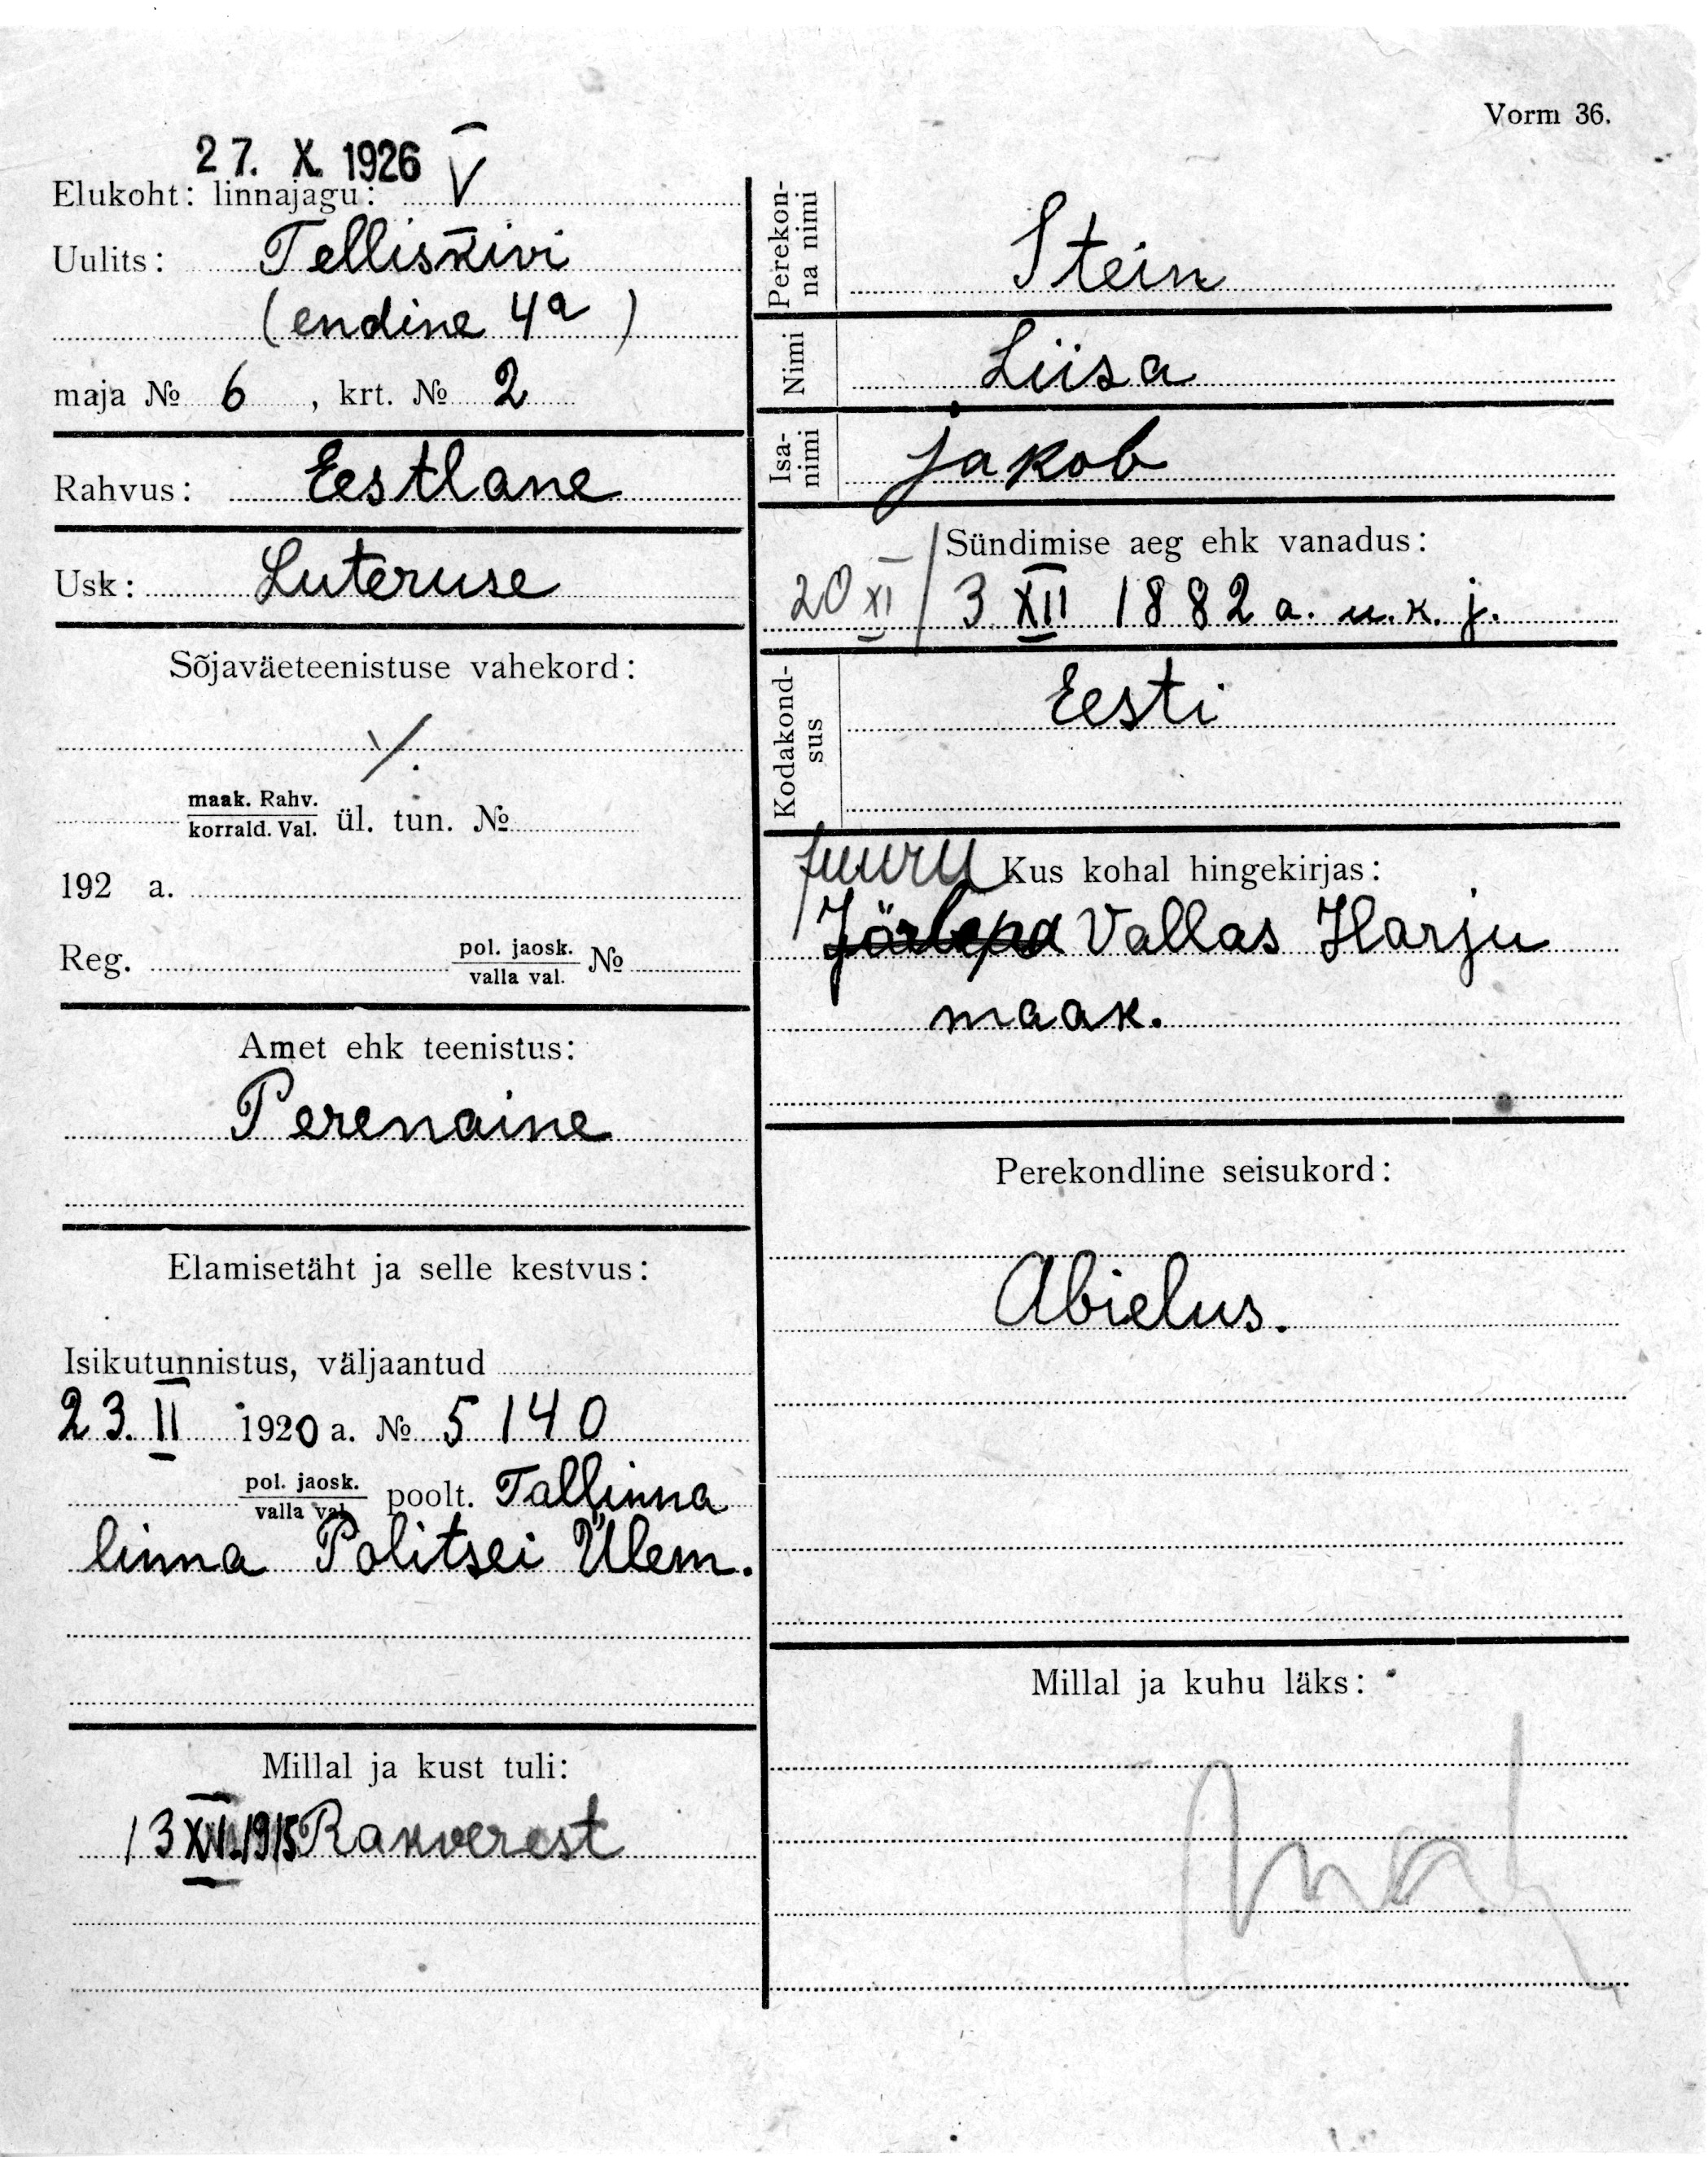 Vorm 36.
27. X. 1926
Elukoht: linnajagu: V
Uulits: Telliskivi
(endine 4a)
maja № 6, krt. № 2
Rahvus: Eestlane
Usk: Luteruse
Sõjaväeteenistuse vahekord:
maak. Rahv.
korrald. Val. ül. tun. №
192 a.
Reg. pol. jaosk.
valla val. №
Amet ehk teenistus:
Perenaine
Elamisetäht ja selle kestvus:
Isikutunnistus, väljaantud
23. II 1920 a. № 5140
pol. jaosk.
valla val. poolt. Tallinna
linna Politsei Ülem.
Millal ja kust tuli:
13 1915 Rakverest
Perekon-
na nimi
Stein
Nimi Liisa
Isa-
nimi
Jakob
Sündimise aeg ehk vanadus:
20 XI / 3 XII 1882 a. u. k. j.
Kodakond-
sus
Eesti
Juuru Kus kohal hingekirjas:
Järlepa Vallas Harju
maak.
Perekondline seisukord:
Abielus.
Millal ja kuhu läks: